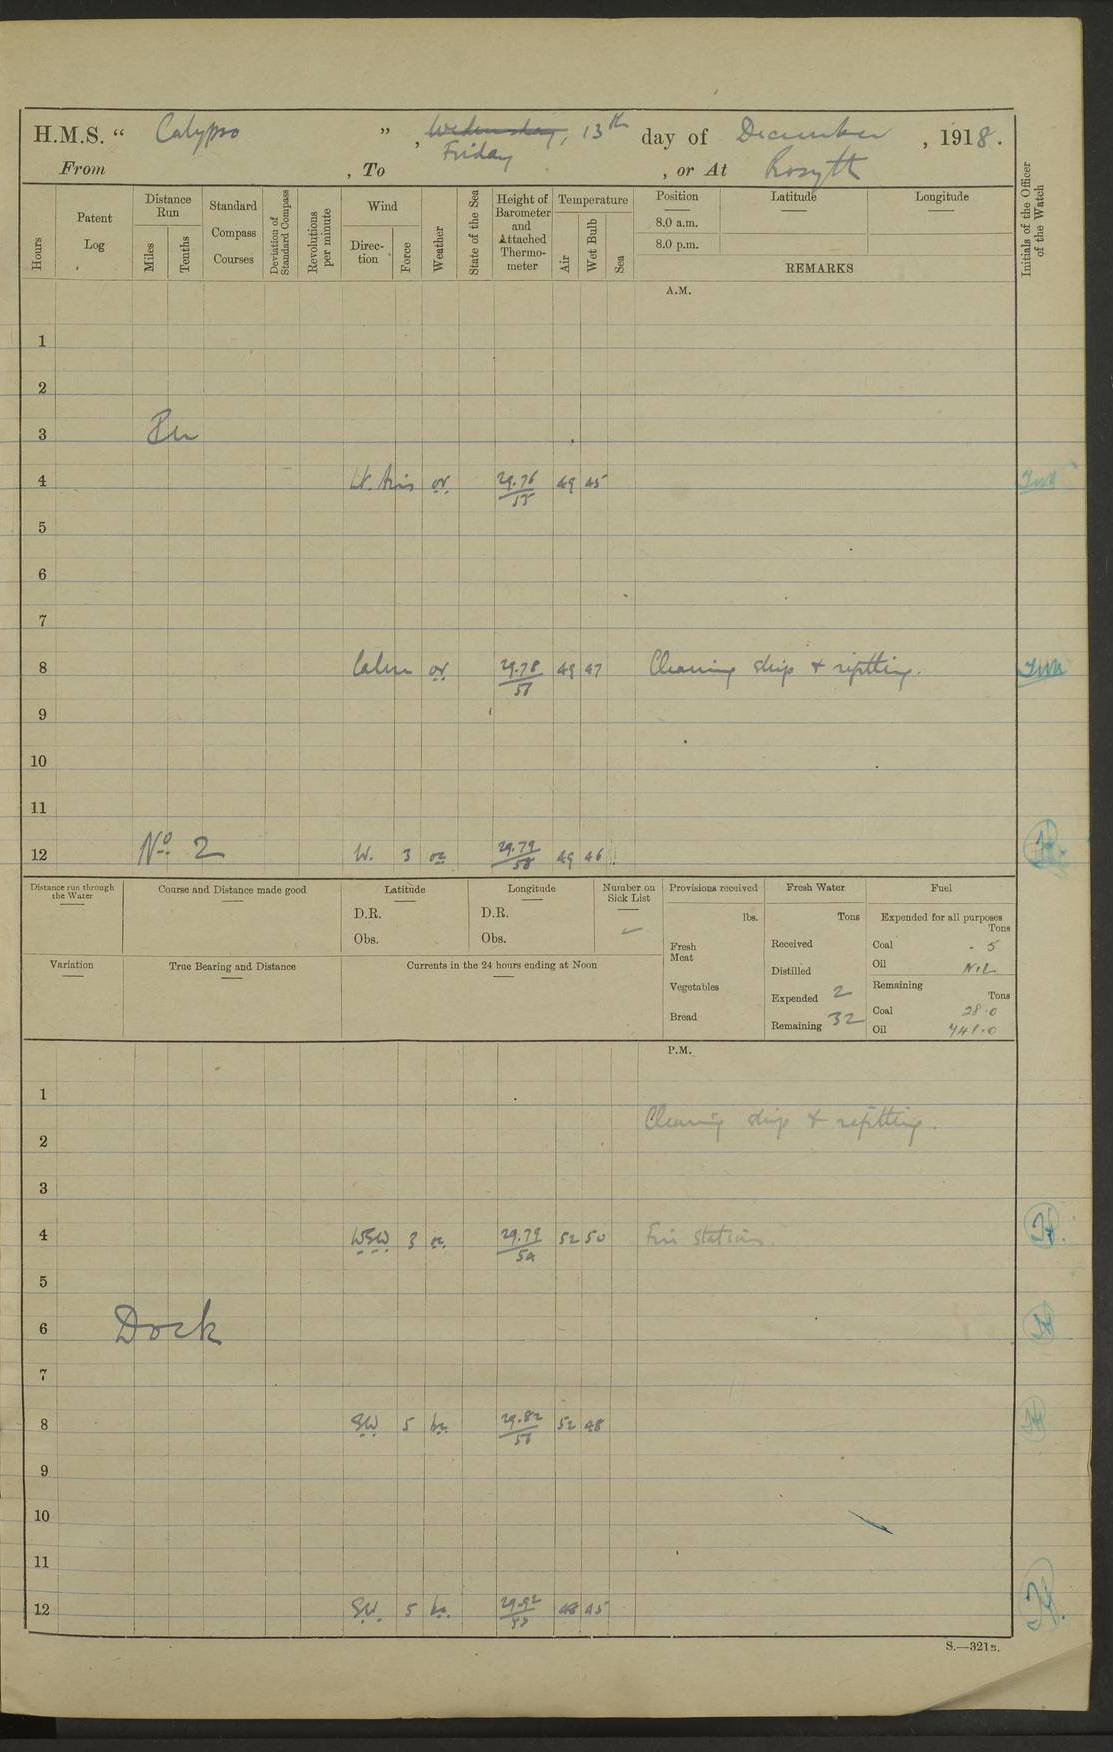 H.M.S. “ Calypso ” , Wednesday, 13th day of December , 1918.
Friday
From , To , or At Rosyth
Hours
Patent Log
Distance Run
Miles
Tenths
Standard Compass Courses
Deviation of Standard Compass
Revolutions per minute
Wind
Direc-tion
Force
Weather
State of the Sea
Height of Barometer and Attached Thermo-meter
Temperature
Air
Wet Bulb
Sea
Position
Latitude
Longitude
8.0 a.m.
8.0 p.m.
REMARKS
Initials of the Officer of the Watch
A.M.
1
2
3
4 Lt. Airs or. 29.76 49 45
55
5
6
7
8 Calm or. 29.78 49 47 Cleaning ship & refitting.
57
9
10
11
12 No. 2 W. 3 29.79 49 46
58
Distance run through the Water
Course and Distance made good
Latitude
D.R.
Obs.
Longitude
D.R.
Obs.
Number on Sick List
Provisions received
lbs.
Fresh Meat
Vegetables
Bread
Fresh Water
Tons
Received
Distilled
Expended 2
Remaining 32
Fuel
Expended for all purposes
Tons
Coal · 5
Oil NIL
Remaining
Tons
Coal 28·0
Oil 741·0
Variation
True Bearing and Distance
Currents in the 24 hours ending at Noon
P.M.
1
Cleaning ship & refitting.
2
3
4 WSW 3 29.79 52 50 Fire stations.
5
6 Dock
7
8 SW 5 29.82 52 48
9
10
11
12 SW. 5 29.92 48 45
S.—321B.